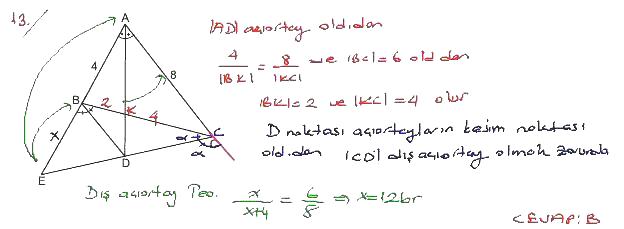 13.
A
4
8
B
2
K
4
C
x
α
α
D
E
|AD| açıortay old.dan
4/|BK| = 8/|KC| ve |BC|=6 old.dan
|BK|=2 ve |KC|=4 olur
D noktası açıortayların kesim noktası
old.dan |CD| dış açıortay olmak zorunda
Dış açıortay Teo. x/x+4 = 6/8 ⇒ x=12br
CEVAP: B